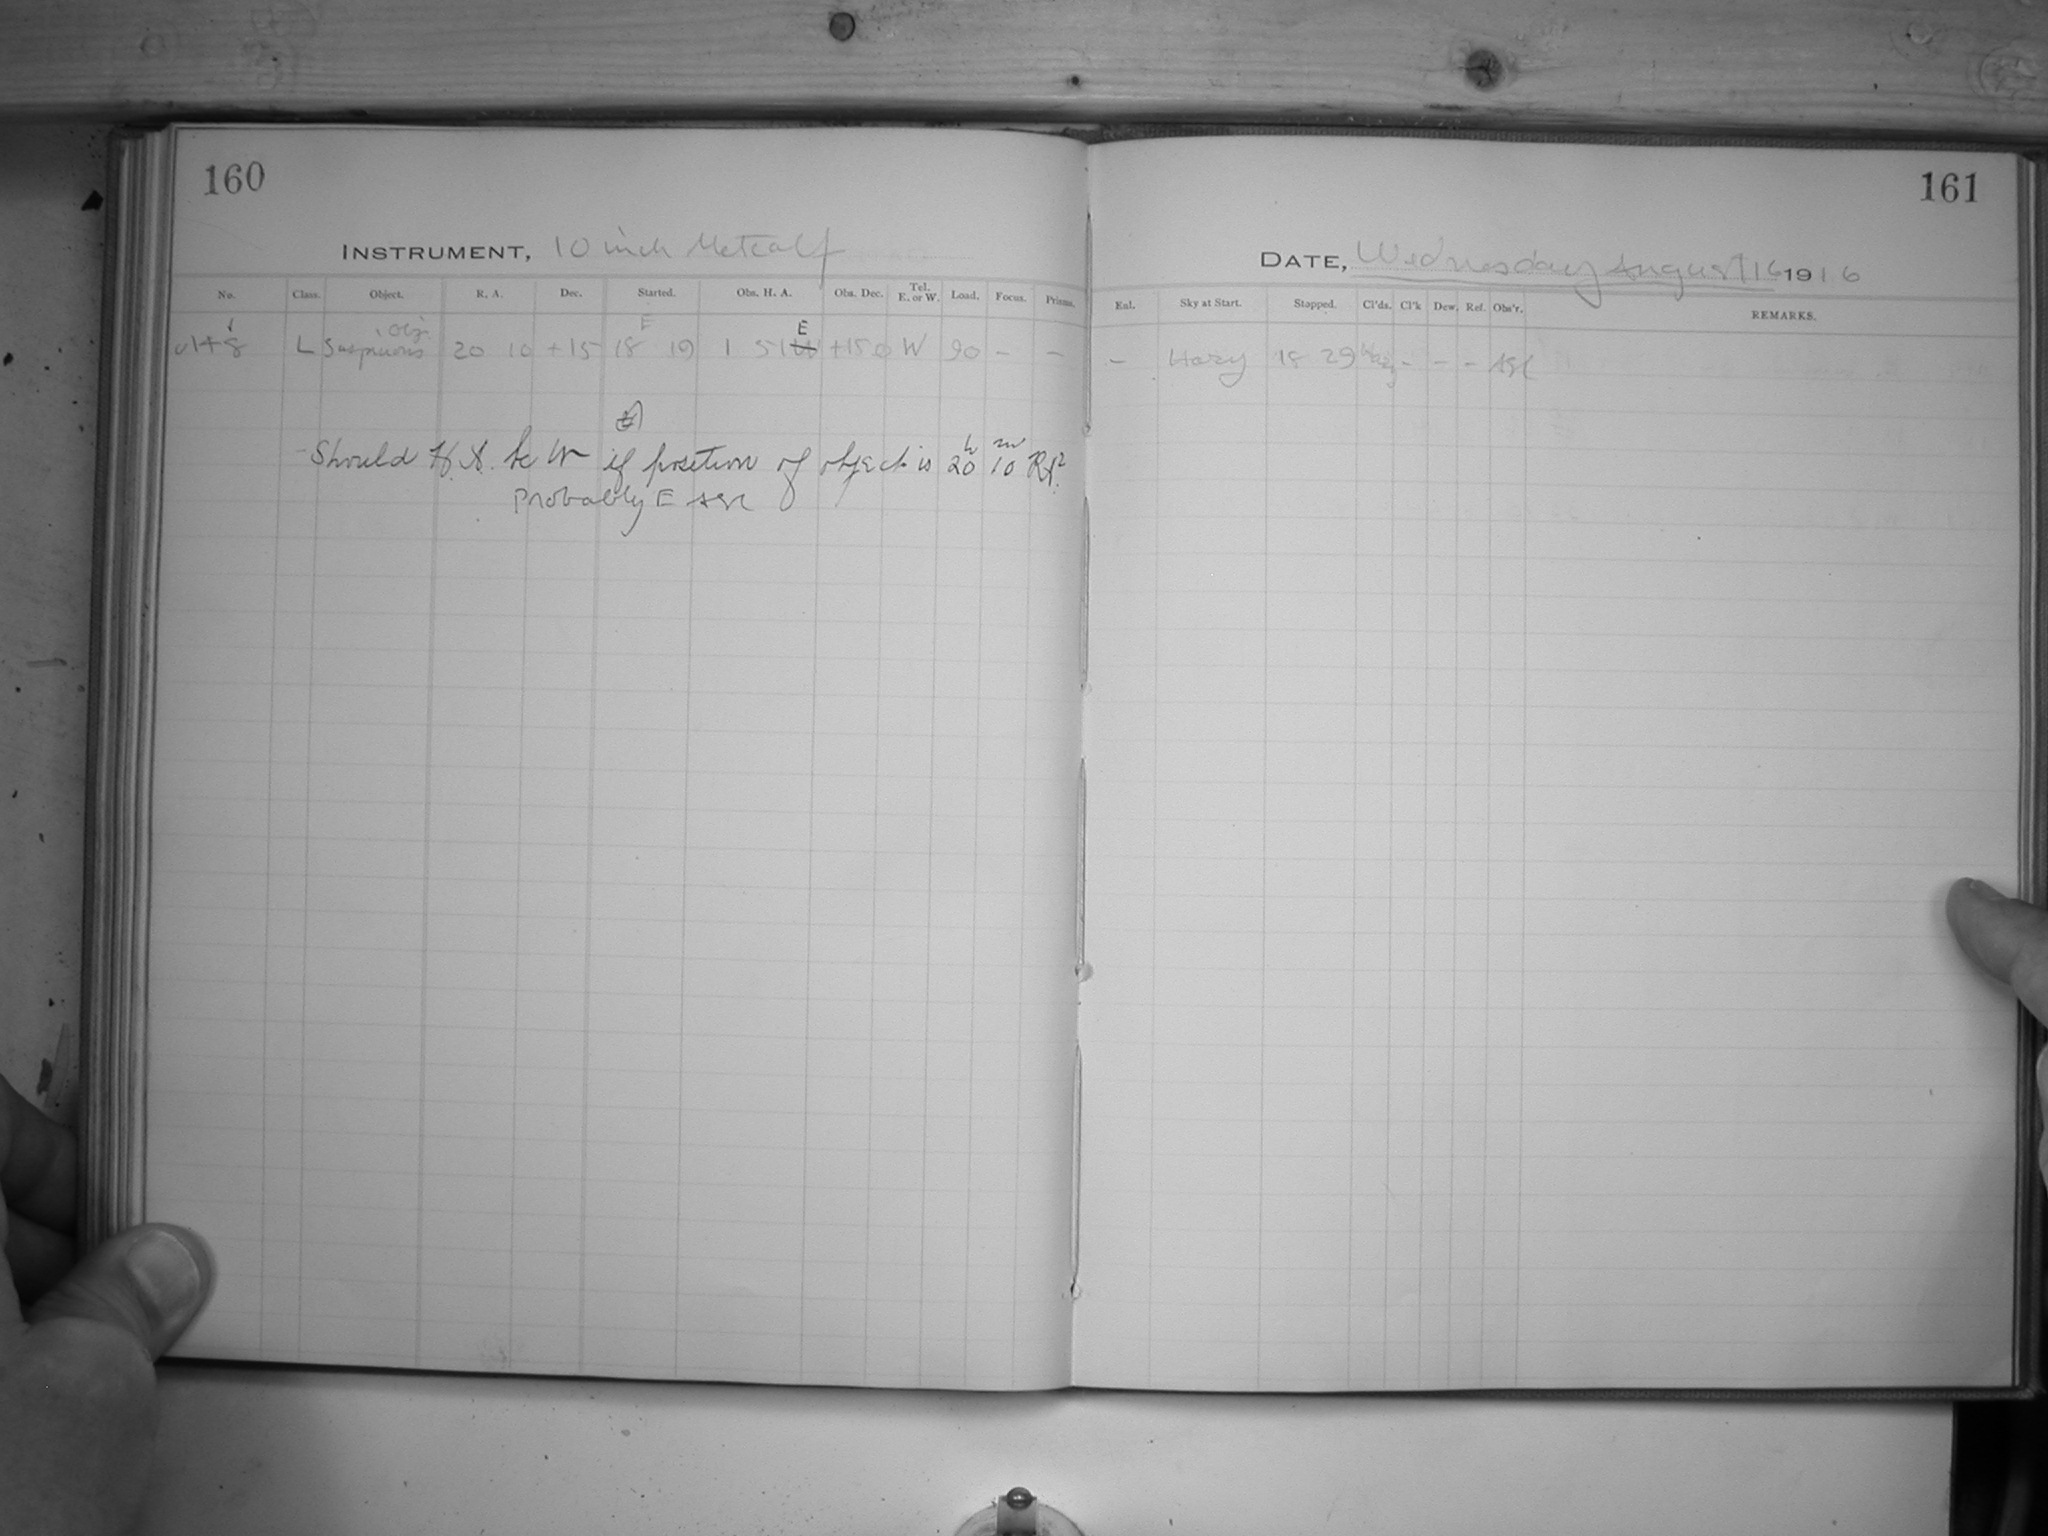 160
INSTRUMENT, 10 inch Metcalf
No. Class. Object. R. A. Dec. Started. Obs. H. A. Obs. Dec. Tel. E. or W. Load. Focus. Prisms.
L Suspicious Obj. 20 10 +15 18 19 E 1 51 W E +15 0 W 90 – –
Should H.A. be W if position of object is 20h 10m RA?
Probably E
161
DATE, Wednesday August 16 1916
Ent. Sky at Start. Stopped. Cl'ds. Cl'k Dew. Ref. Obs'r. REMARKS.
– Hazy 18 29 Hazy – – –